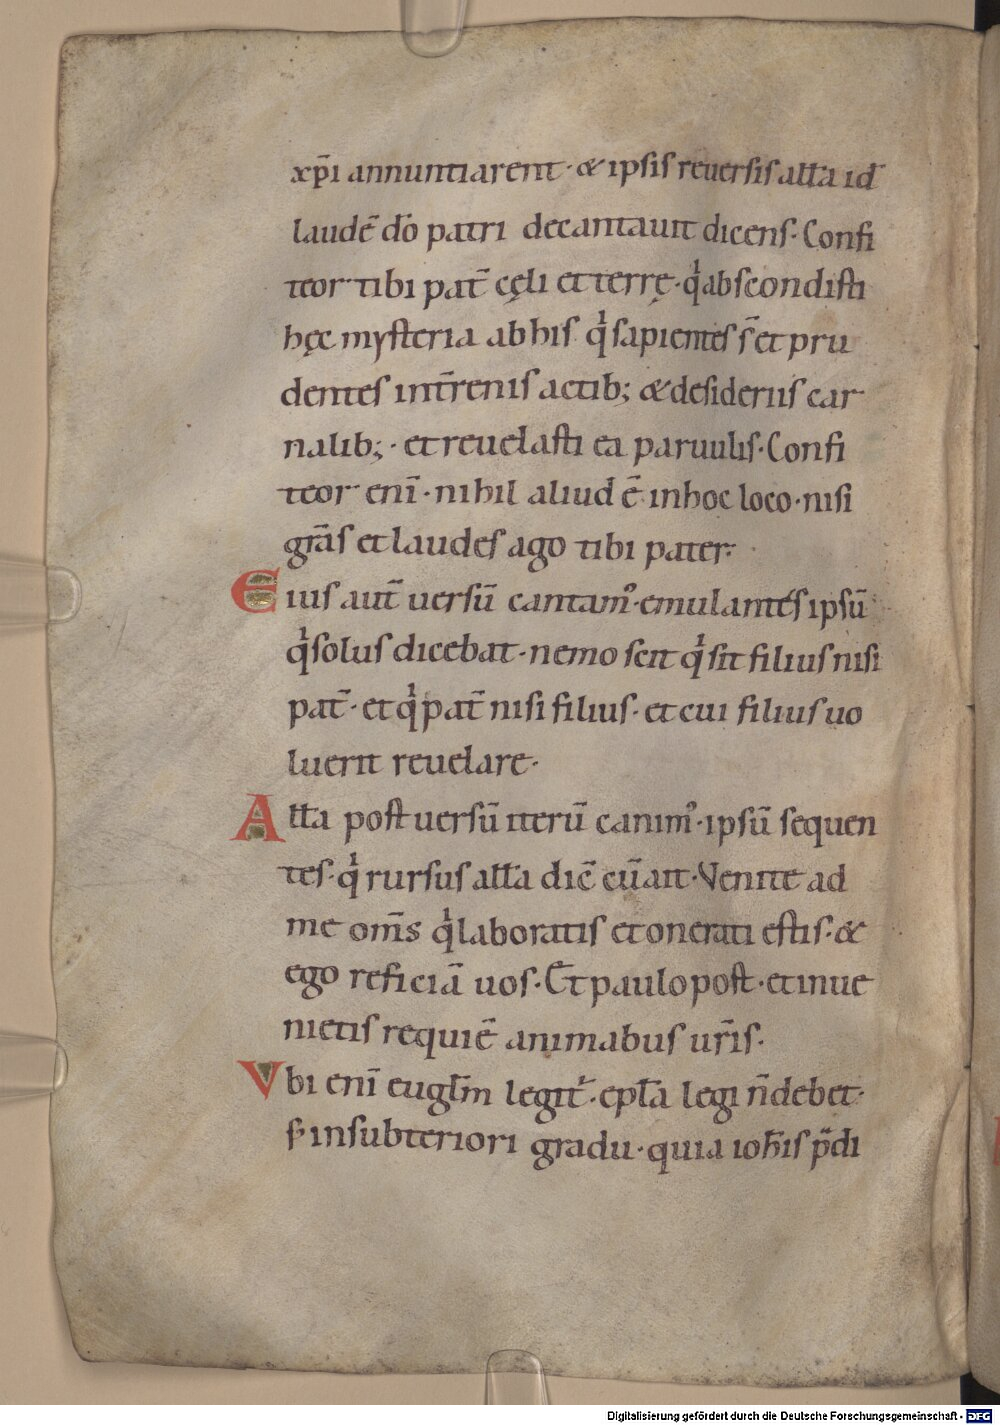 xp̄i annuntiarent · & ipsis reuersis all̄a id
laudē do̅ patri decantauit dicens · Confi
teor tibi pat̄ cęli et terrę · qͥ abscondisti
hęc mysteria ab his qͥ sapientes s̄ et pru
dentes in t̄renis actib; & desideriis car
nalib; · et reuelasti ea paruulis · Confi
teor enī · nihil aliud ē in hoc loco · nisi
gr̄as et laudes ago tibi pater·
Eius aut̄ uersū cantam᾿ · emulantes ipsū
qͥ solus dicebat · nemo scit qͥ sit filius nisi
pat̄ · et qͥ pat̄ nisi filius · et cui filius uo
luerit reuelare ·
All̄a post uersū iterū canim᾿ · ipsū sequen
tes · qͥ rursus all̄a dic̄ cū ait · Venite ad
me om̄s qͥ laboratis et onerati estis · &
ego reficiā uos · Et paulo post · et inue
nietis requiē animabus ur̄is ·
Vbi enī eugl̄m legit᾿ · epl̄a legi n̄ debet ·
s᾿ in subteriori gradu · quia ioh̄is p̄di
Digitalisierung gefördert durch die Deutsche Forschungsgemeinschaft - DFG